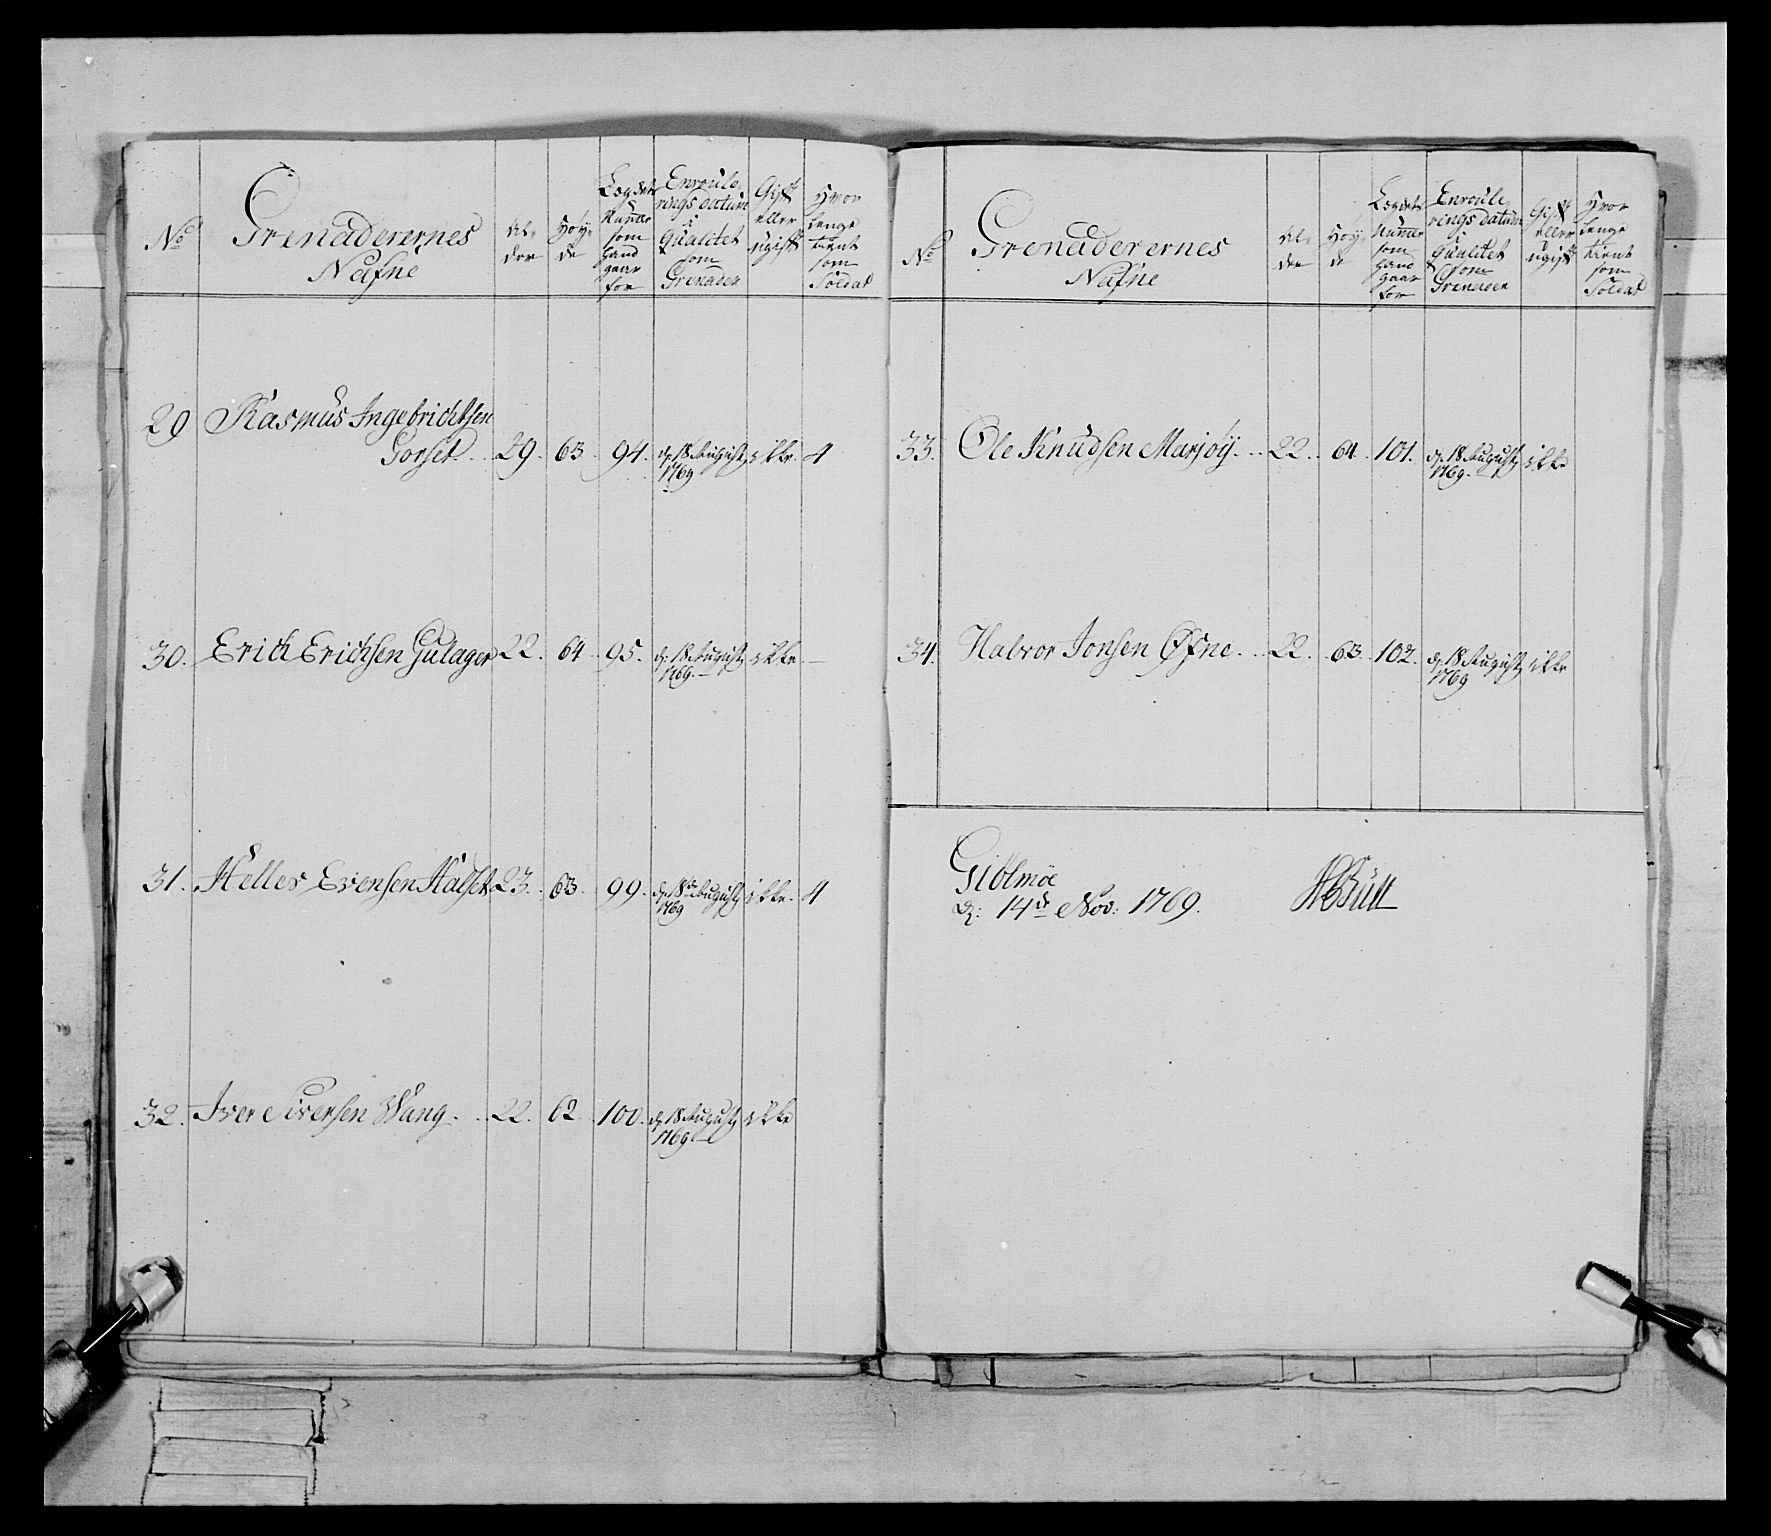 No
Grenaderernes
Nafne
Al-
der
Höy-
de
Legdets
Numer
som
hand
gaar
for
Enroule-
rings datum
i
Qualitet
som
Grenader
Gift
eller
ugift
Hvor
lenge
tient
som
Soldat
29 Rasmus Ingebrichtsen
Gorset. 29. 63. 94. d. 18 August ikke. 4
1769
30. Erich Erichsen Gulager 22. 64. 95. d. 18 August ikke. —
1769.
31. Helles Evensen Halset 23. 63. 99. d. 18de August ikke. 4
1769
32. Iver Siversen Wang. 22. 62 100. d. 18 August ikke
1769
No
Grenaderernes
Nafne
Al-
der
Höy-
de
Legdets
Numer
som
hand
gaar
for
Enroule-
rings datum
i
Qualitet
som
Grenader
Gift
eller
ugift
Hvor
lenge
tient
som
Soldat
33. Ole Knudsen Marjøÿ. 22. 64. 101. d. 18 August ikke
1769.
34. Halvor Jonsen Øfne. 22. 63. 102. d. 18 August ikke
1769
Giölmöe
d: 14de Nov: 1769.